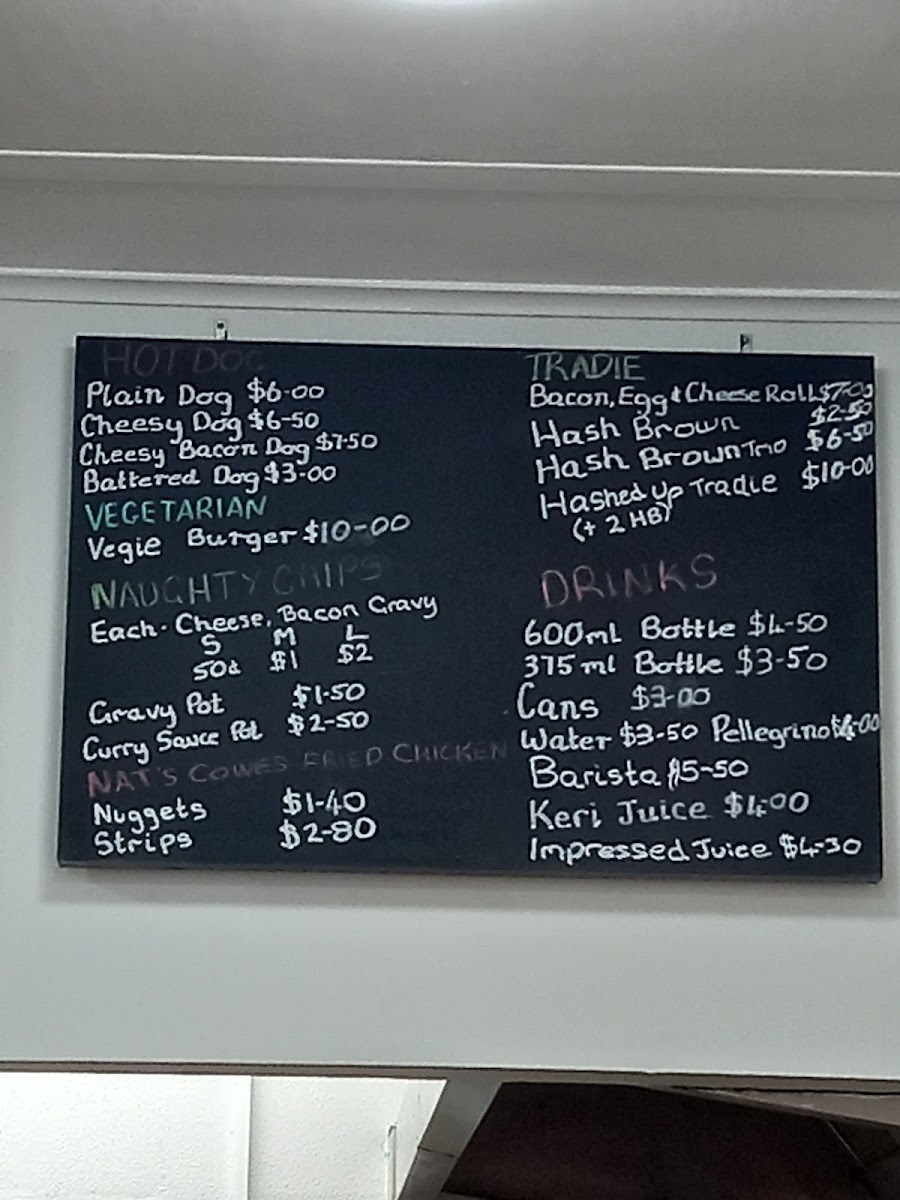 HOT DOG
Plain Dog $6-00
Cheesy Dog $6-50
Cheesy Bacon Dog $7-50
Battered Dog $3-00
VEGETARIAN
Vegie Burger $10-00
NAUGHTY CHIPS
Each - Cheese, Bacon Gravy
S M L
50¢ $1 $2
Gravy Pot $1-50
Curry Sauce Pot $2-50
NAT'S COWES FRIED CHICKEN
Nuggets $1-40
Strips $2-80
TRADIE
Bacon, Egg & Cheese Roll $7-00
Hash Brown $2-50
Hash Brown Trio $6-50
Hashed Up Tradie $10-00
(+ 2 HB)
DRINKS
600ml Bottle $4-50
375ml Bottle $3-50
Cans $3-00
Water $3-50 Pellegrino $4-00
Barista $5-50
Keri Juice $4-00
Impressed Juice $4-30